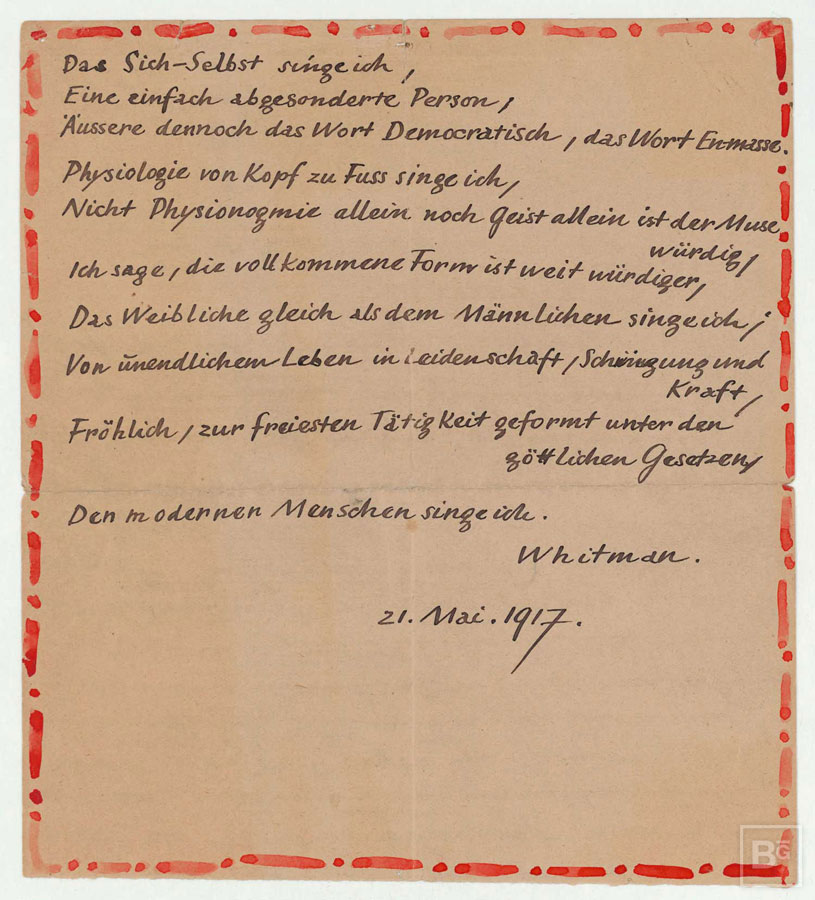 Das Sich-Selbst singe ich,
Eine einfach abgesonderte Person,
Äussere dennoch das Wort Democratisch, das Wort En-masse.
Physiologie von Kopf zu Fuss singe ich,
Nicht Physionogmie allein noch Geist allein ist der Muse
würdig,
Ich sage, die vollkommene Form ist weit würdiger,
Das Weibliche gleich als dem Männlichen singe ich;
Von unendlichem Leben in Leidenschaft, und
Kraft,
Fröhlich, zur freiesten Tätigkeit geformt unter den
göttlichen Gesetzen,
Den modernen Menschen singe ich.
Whitman.
21. Mai. 1917.
BG